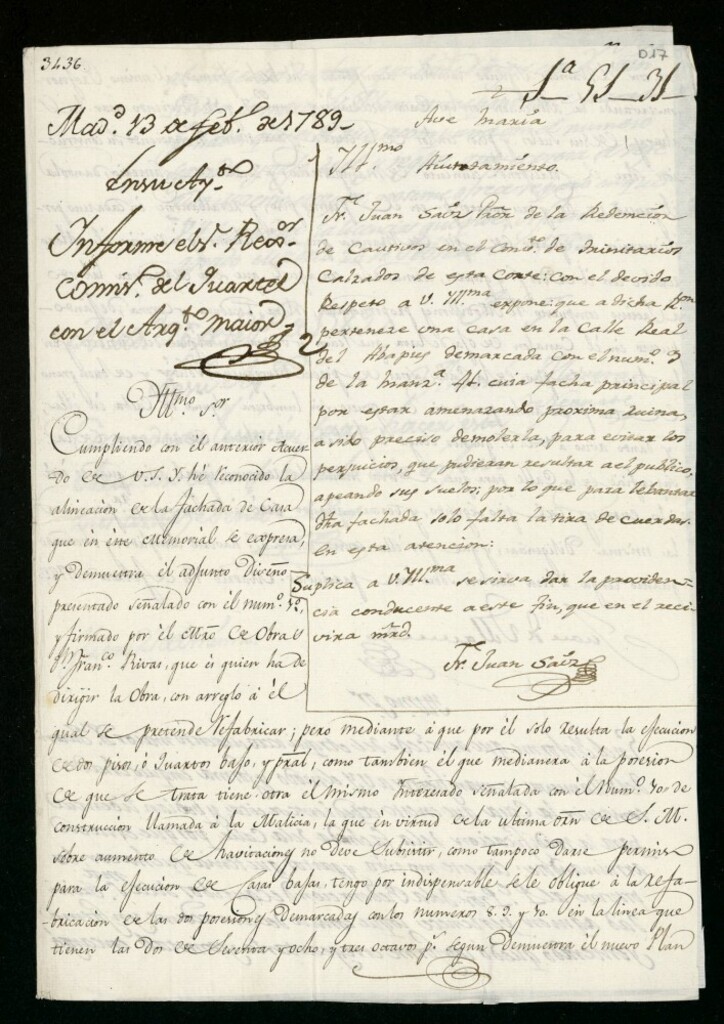 3436
D.17
1ª 51 31
Mad.d 13 de feb.o de 1789
En su Ay.to
Informe el Sr. Rexor
Comis.o del Quartel
con el Arq.to maior
2
Ave Maria
1
Yll.mo Aiuntamiento.
Fr. Juan Saéz Pror de la Redencion
de Cautivos en el Conv.to de Trinitarios
Calzados de esta Corte: con el devido
Respeto a V. Yllma expone: que a dicha Ron
perteneze una casa en la Calle Real
del Abapies demarcada con el num.o 9
de la manz.a 41. cuia facha principal
por estar amenazando proxima ruina,
a sido preciso demolerla, para evitar los
perjuicios, que pudieran resultar a el publico,
apeando sus suelos; por lo que para lebantar
dha fachada solo falta la tira de cuerdas.
en esta atencion:
Suplica a V. Yllma se sirva dar la providen-
cia conducente a este fin, que en el reci-
vira mrd.
Fr. Juan Saéz
Yllmo Sor
Cumpliendo con él anterior Acuer
do de V.S.Y. hé reconocido la
alineacion de la fachada de Casa
que én éste memorial se éxpresa,
y demuestra él adjunto Diseño
presentado señalado con él num.o 1.o
y firmado por él Mro de Obras
Dn. Franco Rivas, que és quien ha de
dirijir la Obra, con arreglo á él
qual se pretende refabricar; pero mediante á que por él solo resulta la ejecucion
de dos pisos, ó Quartos bajo, y pral; como tambien él que medianera á la posesion
de que se trata tiene otra él mismo Interesado señalada con él Num.o 10. de
construccion llamada á la Malicia, la que én virtud de la ultima orn de S. M.
sobre aumento de havitaciones no deve subsistir, como tampoco darse permiso
para la ejecucion de Casas bajas, tengo por indispensable se le obligue á la refa-
-bricacion de las dos posesiones demarcadas con los numeros 8. 9. y 10. én la linea que
tienen las dos de setenta y ocho, y tres octavos ps. segun demuestra él nuevo Plan